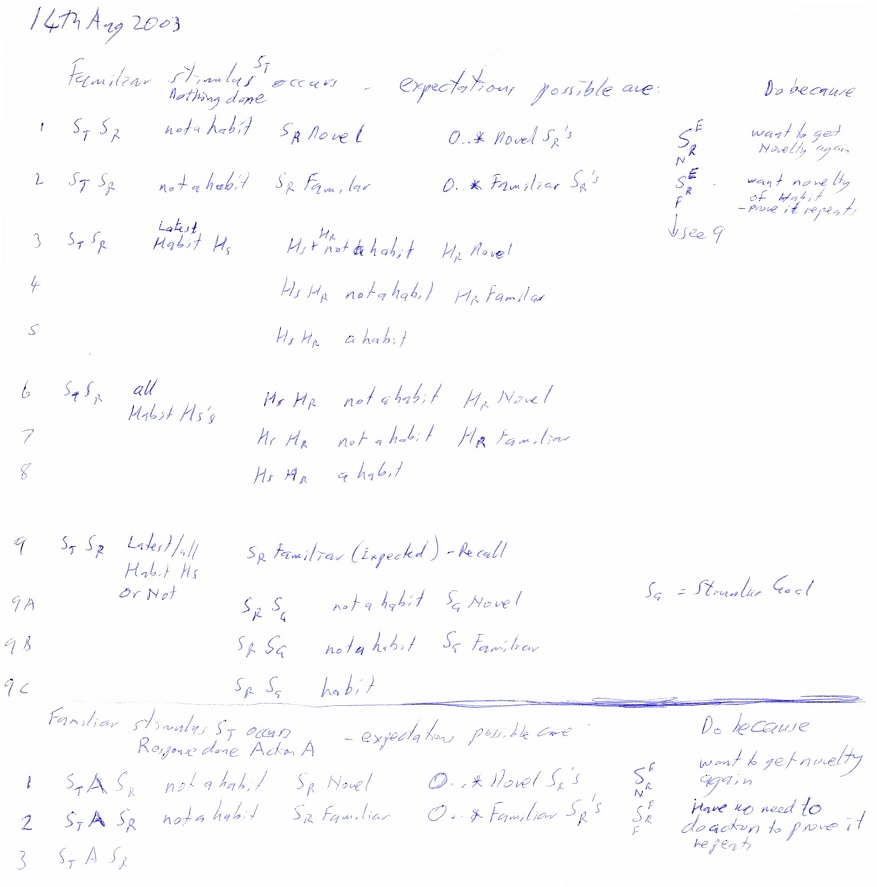 14th Aug 2003
Familiar stimulus S_T occurs - expectations possible are: Do because
Nothing done
1 S_T S_R not a habit S_R Novel 0..* Novel S_R's S_R^E N want to get Novelty again
2 S_T S_R not a habit S_R Familar 0..* Familiar S_R's S_R^E F want novelty of Habit - prove it repeats
↓ see 9
3 S_T S_R Latest Habit H_S H_S H_R not a habit H_R Novel
4 H_S H_R not a habit H_R Familar
5 H_S H_R a habit
6 S_R all Habit H_S's H_S H_R not a habit H_R Novel
7 H_S H_R not a habit H_R Familiar
8 H_S H_R a habit
9 S_T S_R Latest/all Habit H_S Or Not S_R Familiar (Expected) - Recall
9A S_R S_G not a habit S_G Novel S_G = Stimular Goal
9B S_R S_G not a habit S_G Familiar
9C S_R S_G habit
Familiar stimulus S_T occurs - expectations possible are: Do because
Response done Action A
1 S_T A S_R not a habit S_R Novel 0..* Novel S_R's S_R N want to get novelty again
2 S_T A S_R not a habit S_R Familiar 0..* Familiar S_R's S_R F have no need to do action to prove it repeats
3 S_T A S_R